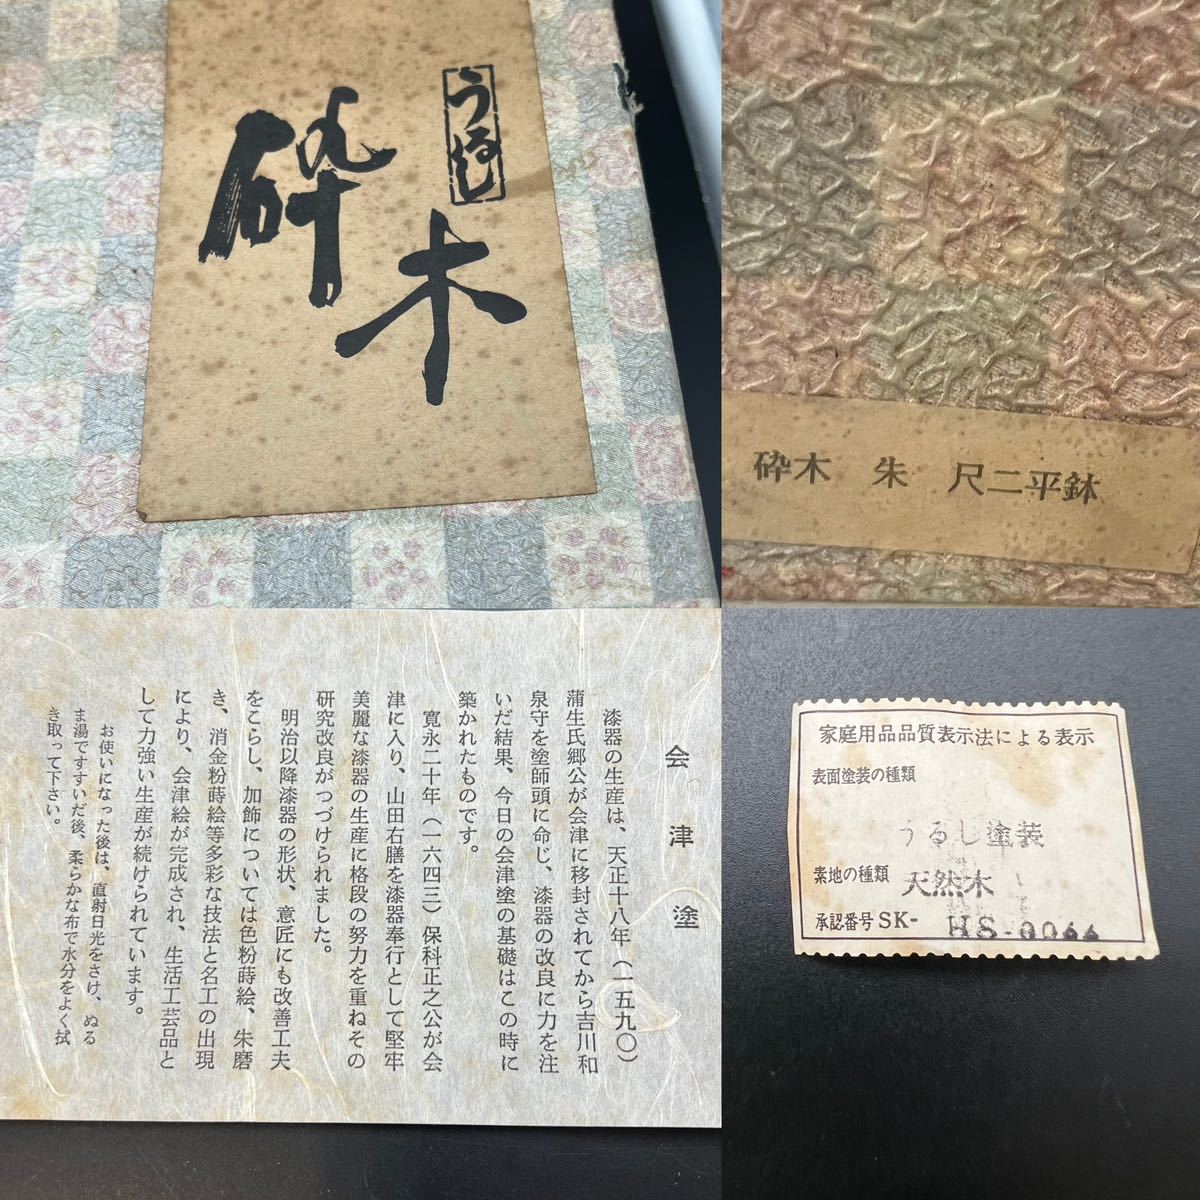 うるし
砕木
砕木　朱　尺二平鉢
会津塗
漆器の生産は、天正十八年（一五九〇）
蒲生氏郷公が会津に移封されてから吉川和
泉守を塗師頭に命じ、漆器の改良に力を注
いだ結果、今日の会津塗の基礎はこの時に
築かれたものです。
寛永二十年（一六四三）保科正之公が会
津に入り、山田右膳を漆器奉行として堅牢
美麗な漆器の生産に格段の努力を重ねその
研究改良がつづけられました。
明治以降漆器の形状、意匠にも改善工夫
をこらし、加飾については色粉蒔絵、朱磨
き、消金粉蒔絵等多彩な技法と名工の出現
により、会津絵が完成され、生活工芸品と
して力強い生産が続けられています。
お使いになった後は、直射日光をさけ、ぬる
ま湯ですすいだ後、柔らかな布で水分をよく拭
き取って下さい。
家庭用品品質表示法による表示
表面塗装の種類
うるし塗装
素地の種類 天然木
承認番号 SK- HS-0066